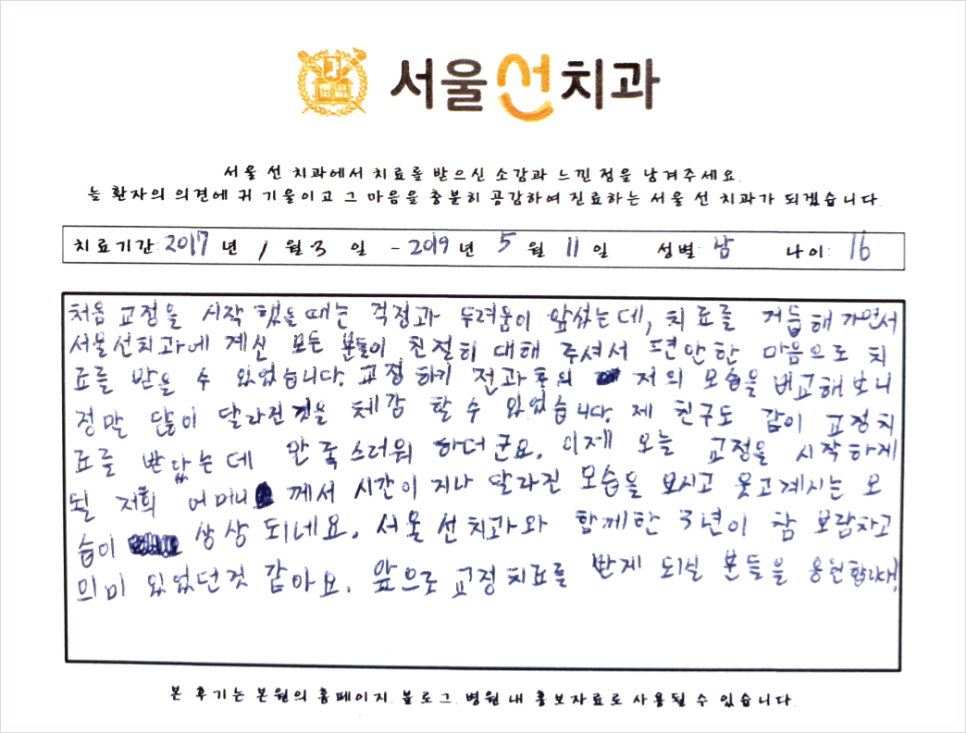 서울선치과
서울 선 치과에서 치료를 받으신 소감과 느낀 점을 남겨주세요.
늘 환자의 의견에 귀 기울이고 그 마음을 충분히 공감하여 진료하는 서울 선 치과가 되겠습니다.
치료기간: 2017 년 1 월 3 일 - 2019 년 5 월 11 일 성별: 남 나이: 16
처음 교정을 시작 했을 때는 걱정과 두려움이 앞섰는데, 치료를 거듭해 가면서
서울선치과에 계신 모든 분들이 친절히 대해 주셔서 편안한 마음으로 치
료를 받을 수 있었습니다. 교정하기 전과 후의 저의 모습을 비교해보니
정말 많이 달라진것을 체감 할 수 있었습니다. 제 친구도 같이 교정치
료를 받았는데 만족스러워 하더군요. 이제 오늘 교정을 시작하게
될 저희 어머니께서 시간이 지나 달라진 모습을 보시고 웃고계시는 모
습이 상상 되네요. 서울 선치과와 함께한 3년이 참 보람차고
의미 있었던것 같아요. 앞으로 교정치료를 받게 되실 분들을 응원합니다!
본 후기는 본원의 홈페이지, 블로그, 병원 내 홍보자료로 사용될 수 있습니다.